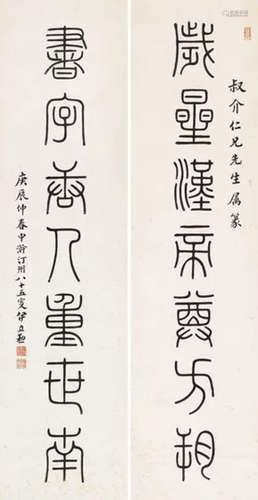 歲星漢帝尊方朔
叔介仁兄先生属篆
書字唐人重世南
庚辰仲春中澣汀州八十五叟伊立勳